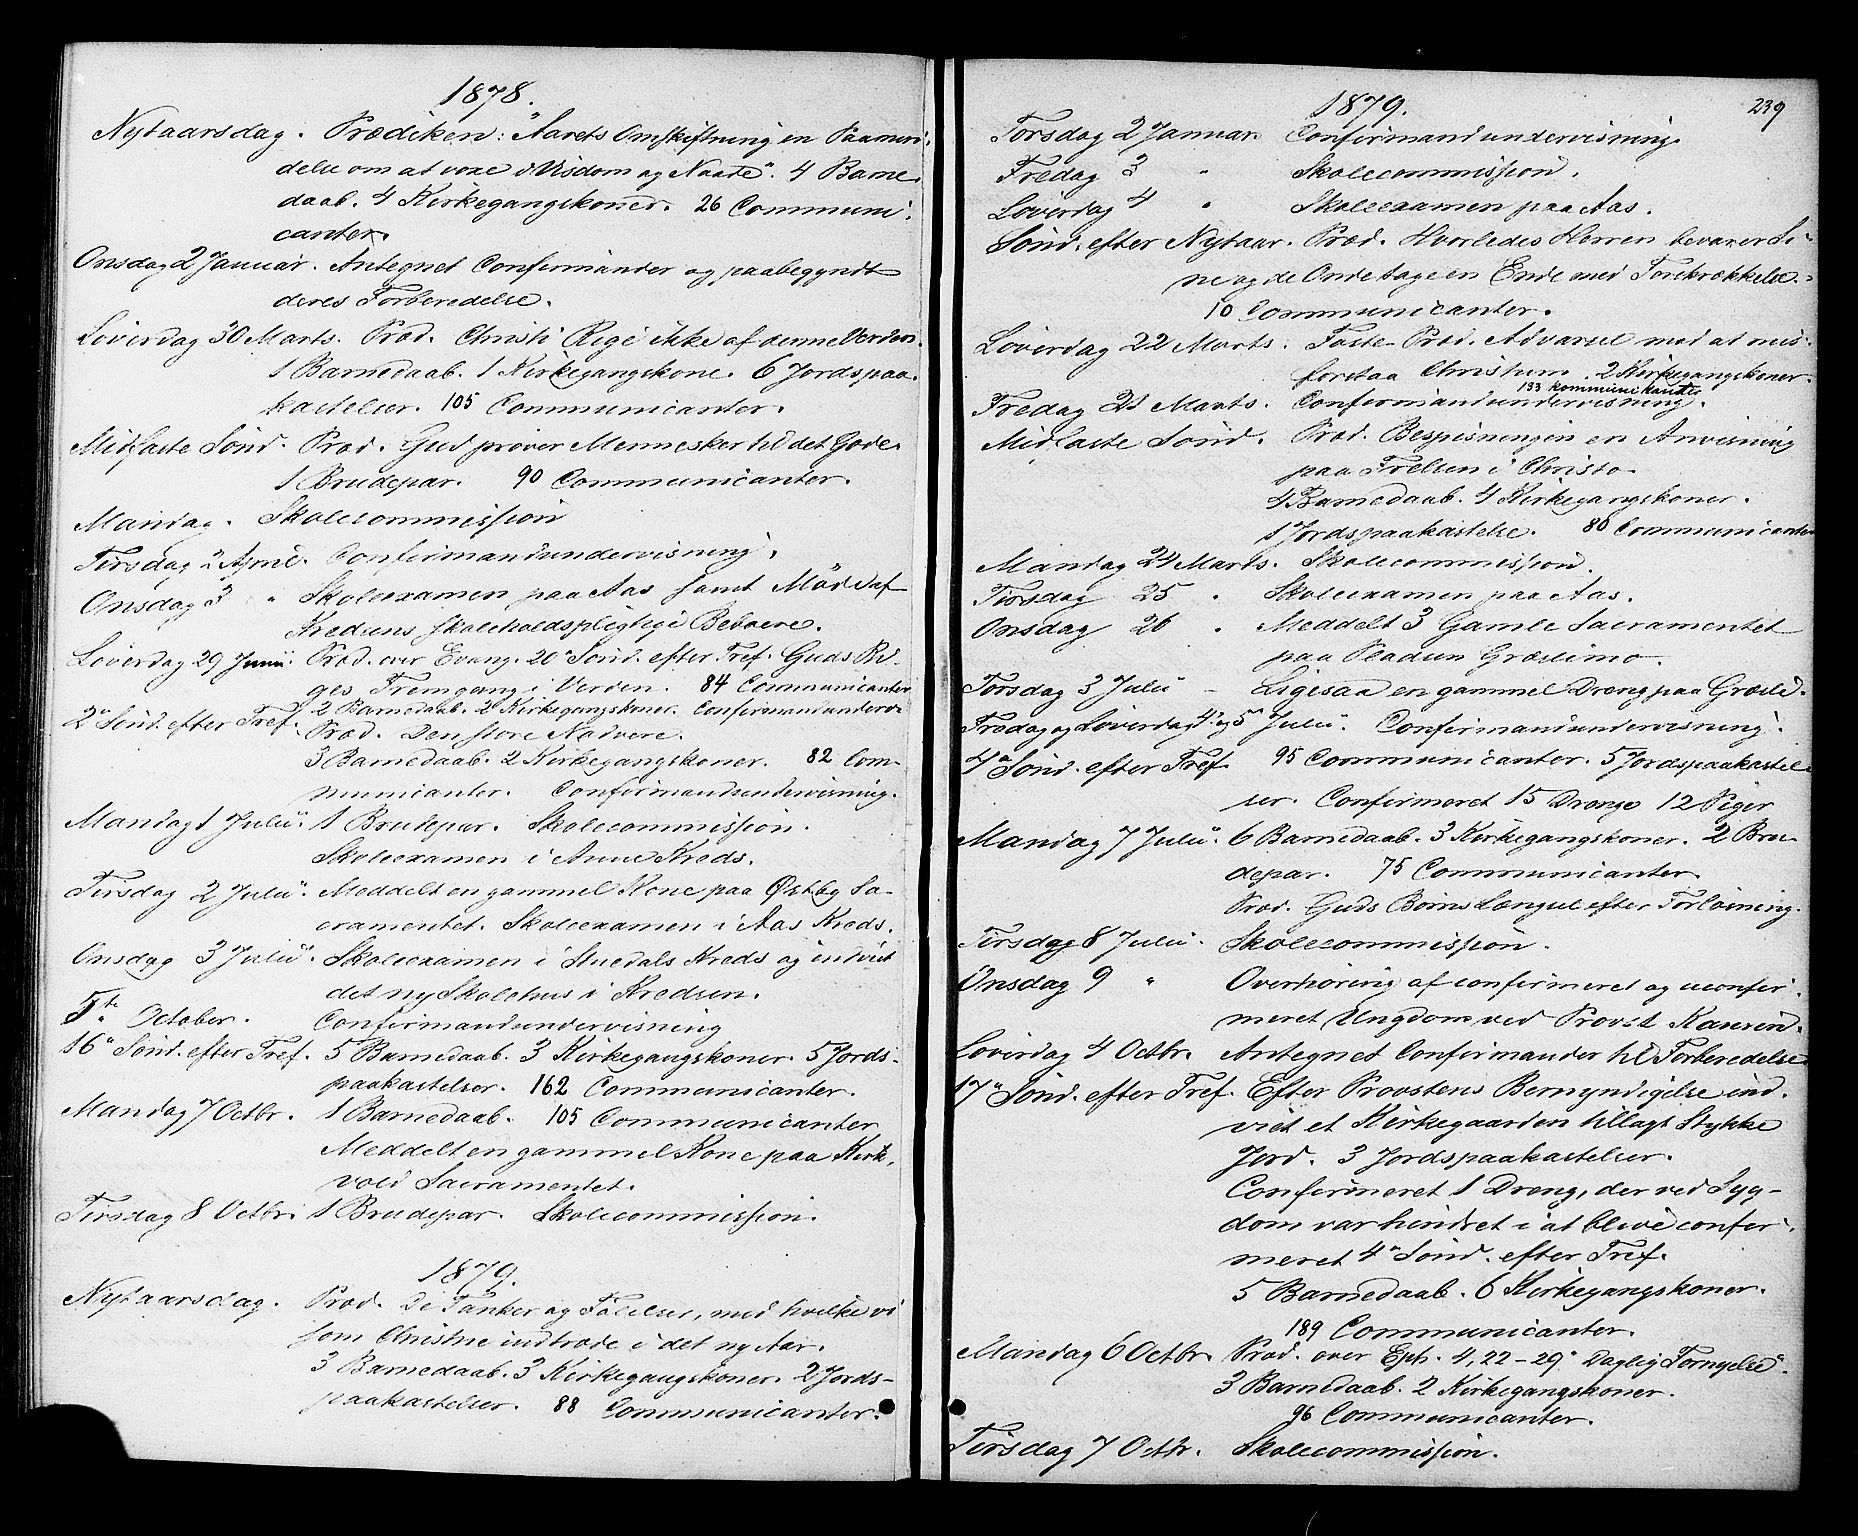 1878.
Nytaarsdag. Prædiken: "Aarets Omskiftning en Paamin-
delse om at voxe i Visdom og Naade". 4 Barne-
daab. 4 Kirkegangskoner. 26 Communi-
canter.
Onsdag 2 Januar. Antegnet Confirmander og paabegyndt
deres Forberedelse.
Løverdag 30 Marts. Præd. Christi Rige ikke af denne Verden.
1 Barnedaab. 1 Kirkegangskone. 6 Jordspaa-
kastelser. 105 Communicanter.
Midfaste Sønd. Præd. Gud prøver Mennesker til det Gode.
1 Brudepar. 90 Communicanter.
Mandag. Skolecommission
Tirsdag 2 April. Confirmandundervisning.
Onsdag 3 " Skoleexamen paa Aas samt Møde af
Kredsens skoleholdspligtige Beboere.
Løverdag 29 Junii. Præd. over Evang. 20de Sønd. efter Tref. Guds Ri-
ges Fremgang i Verden. 84 Communicanter
2 Barnedaab. 2 Kirkegangskoner. Confirmandunderv.
2" Sønd. efter Tref. Præd. Den store Nadvere.
3 Barnedaab. 2 Kirkegangskoner. 82 Com-
municanter. Confirmandundervisning.
Mandag 1 Julii. 1 Brudepar. Skolecommission.
Skoleexamen i Kreds.
Tirsdag 2 Julii. Meddelt en gammel Kone paa Østby Sa-
cramentet. Skoleexamen i Aas Kreds.
Onsdag 3 Julii. Skoleexamen i Stuedals Kreds og indviet
det ny Skolehus i Kredsen.
5te October. Confirmandundervisning
16" Sønd. efter Tref. 5 Barnedaab. 3 Kirkegangskoner. 5 Jords-
paakastelser. 162 Communicanter.
Mandag 7 Octbr. 1 Barnedaab. 105 Communicanter
Meddelt en gammel Kone paa Kirk-
vold Sacramentet.
Tirsdag 8 Octbr. 1 Brudepar. Skolecommission.
1879.
Nytaarsdag. Præd. De Tanker og Følelser, med hvilke vi
som Christne indtræde i det ny Aar.
3 Barnedaab. 3 Kirkegangskoner. 2 Jords-
paakastelser. 88 Communicanter.
239
1879.
Torsdag 2 Januar. Confirmandundervisning.
Fredag 3 " Skolecommission.
Løverdag 4 " Skoleexamen paa Aas.
Sønd. efter Nytaar. Præd. Hvorledes Herren bevarer Si-
ne og de Onde tage en Ende med Forskrækkelse.
10 Communicanter.
Løverdag 22 Marts. Faste Præd. Advarsel mod at mis-
forstaa Christum. 2 Kirkegangskoner.
133 kommunikanter
Fredag 21 Marts. Confirmandundervisning.
Midfaste Sønd. Præd. Bespisningen en Anvisning
paa Frelsen i Christo.
4 Barnedaab. 4 Kirkegangskoner.
1 Jordspaakastelse. 80 Communicanter
Mandag 24 Marts. Skolecommission.
Tirsdag 25 " Skoleexamen paa Aas.
Onsdag 26 " Meddelt 3 Gamle Sacramentet
paa Pladsen Græslimo.
Torsdag 3 Julii – Ligesaa en gammel Dreng paa Græsli.
Fredag og Løverdag 4" og 5" Julii. Confirmandundervisning.
4" Sønd. efter Tref. 95 Communicanter. 5 Jordspaakastel-
ser. Confirmeret 15 Drenge 12 Piger
Mandag 7 Julii. 6 Barnedaab. 3 Kirkegangskoner. 2 Bru-
depar. 75 Communicanter.
Præd. Guds Børns Længsel efter Forløsning.
Tirsdag 8 Julii. Skolecommission.
Onsdag 9 " Overhøring af confirmeret og uconfir-
meret Ungdom ved Provst
Løverdag 4 Octbr. Antegnet Confirmander til Forberedelse
17" Sønd. efter Tref. Efter Provstens Bemyndigelse ind-
viet et Kirkegaarden tillagt Stykke
Jord. 3 Jordspaakastelser.
Confirmeret 1 Dreng, der ved Syg-
dom var hindret i at blive confir-
meret 4" Sønd. efter Tref.
5 Barnedaab. 6 Kirkegangskoner.
189 Communicanter.
Mandag 6 Octbr. Præd. over Eph. 4, 22-29" Daglig Fornyelse"
3 Barnedaab. 2 Kirkegangskoner.
96 Communicanter.
Tirsdag 7 Octbr. Skolecommission.